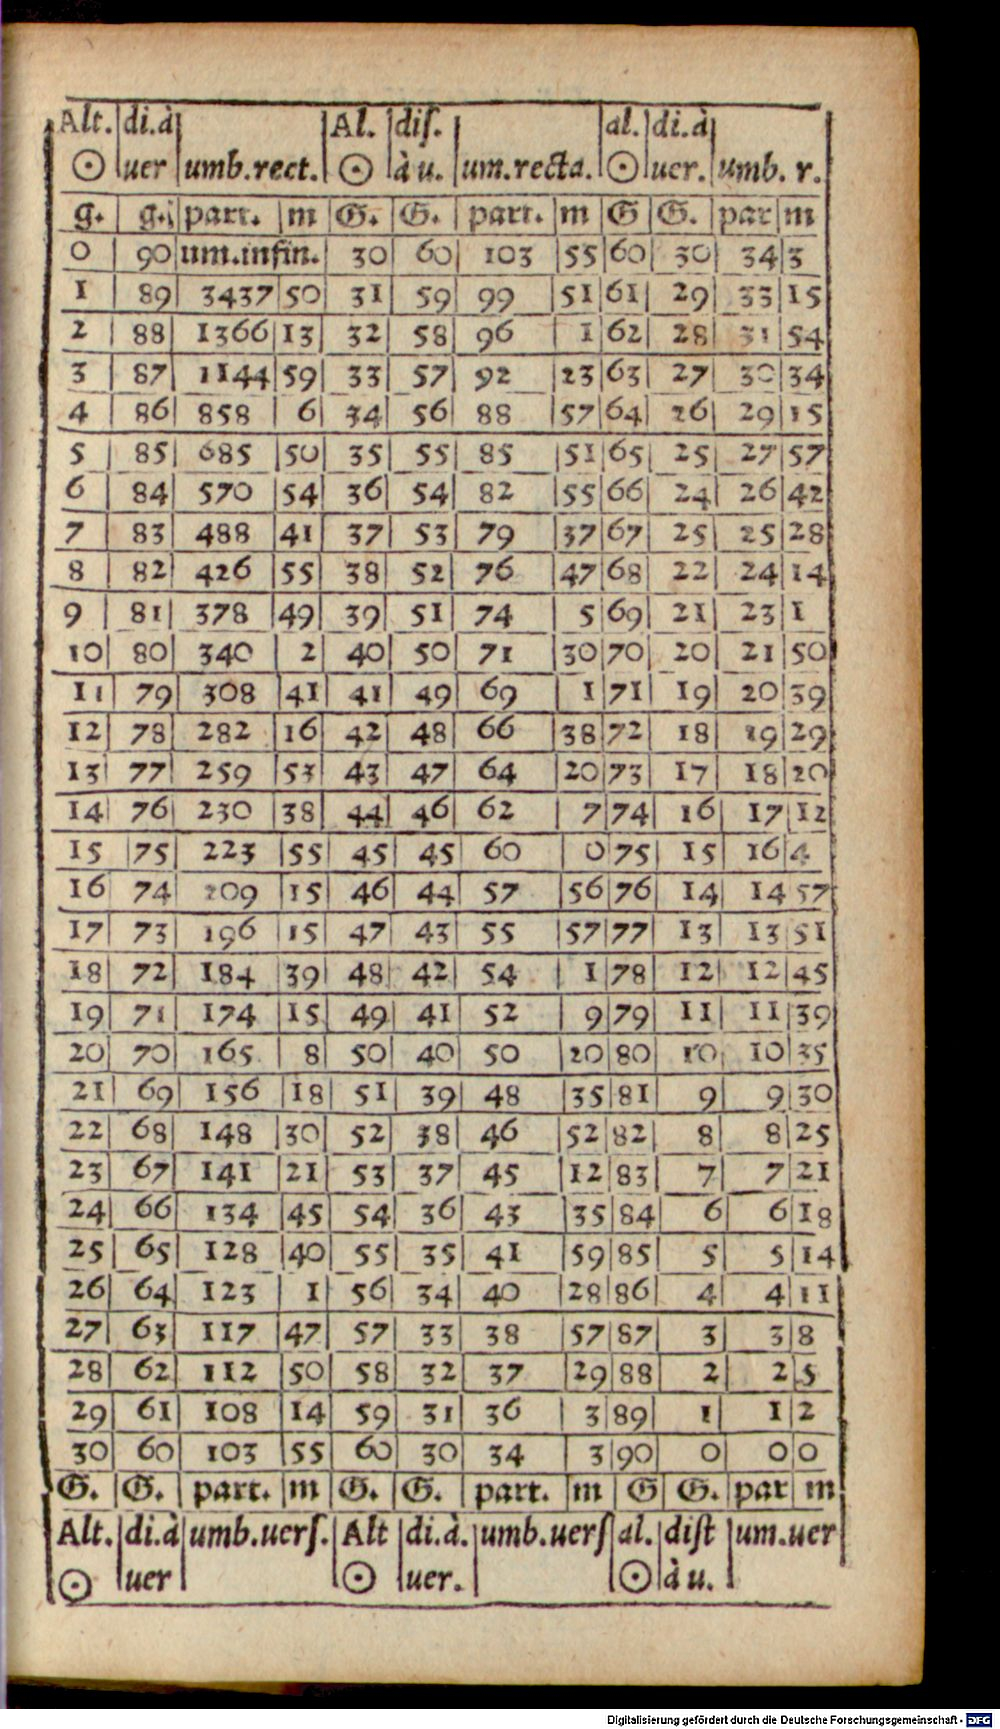 Alt. di.à Al. diſ. al. di.à
☉ uer umb.rect. ☉ à u. um.recta. ☉ uer. umb. r.
g. g. part. m G. G. part. m G G. par m
0 90 um.infin. 30 60 103 55 60 30 34 3
1 89 3437 50 31 59 99 51 61 29 33 15
2 88 1366 13 32 58 96 1 62 28 31 54
3 87 1144 59 33 57 92 23 63 27 30 34
4 86 858 6 34 56 88 57 64 26 29 15
5 85 685 50 35 55 85 51 65 25 27 57
6 84 570 54 36 54 82 55 66 24 26 42
7 83 488 41 37 53 79 37 67 25 25 28
8 82 426 55 38 52 76 47 68 22 24 14
9 81 378 49 39 51 74 5 69 21 23 1
10 80 340 2 40 50 71 30 70 20 21 50
11 79 308 41 41 49 69 1 71 19 20 39
12 78 282 16 42 48 66 38 72 18 19 29
13 77 259 53 43 47 64 20 73 17 18 20
14 76 230 38 44 46 62 7 74 16 17 12
15 75 223 55 45 45 60 0 75 15 16 4
16 74 209 15 46 44 57 56 76 14 14 57
17 73 196 15 47 43 55 57 77 13 13 51
18 72 184 39 48 42 54 1 78 12 12 45
19 71 174 15 49 41 52 9 79 11 11 39
20 70 165 8 50 40 50 20 80 10 10 35
21 69 156 18 51 39 48 35 81 9 9 30
22 68 148 30 52 38 46 52 82 8 8 25
23 67 141 21 53 37 45 12 83 7 7 21
24 66 134 45 54 36 43 35 84 6 6 18
25 65 128 40 55 35 41 59 85 5 5 14
26 64 123 1 56 34 40 28 86 4 4 11
27 63 117 47 57 33 38 57 87 3 3 8
28 62 112 50 58 32 37 29 88 2 2 5
29 61 108 14 59 31 36 3 89 1 1 2
30 60 103 55 60 30 34 3 90 0 0 0
G. G. part. m G. G. part. m G G. par m
Alt. di.à umb.uerſ. Alt di.à. umb.uerſ al. diſt um.uer
☉ uer ☉ uer. ☉ à u.
Digitalisierung gefördert durch die Deutsche Forschungsgemeinschaft - DFG